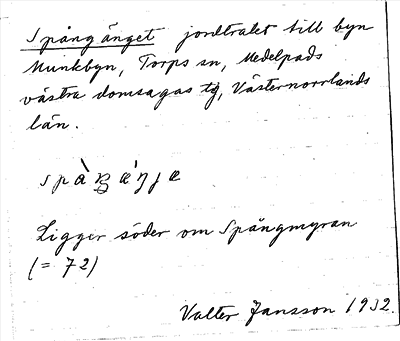 Spångänget jordtrakt till byn
Munkbyn, Torps sn, Medelpads
västra domsagas tg, Västernorrlands
län.
Ligger söder om Spångmyran
(= 72)
Valter Jansson 1932.